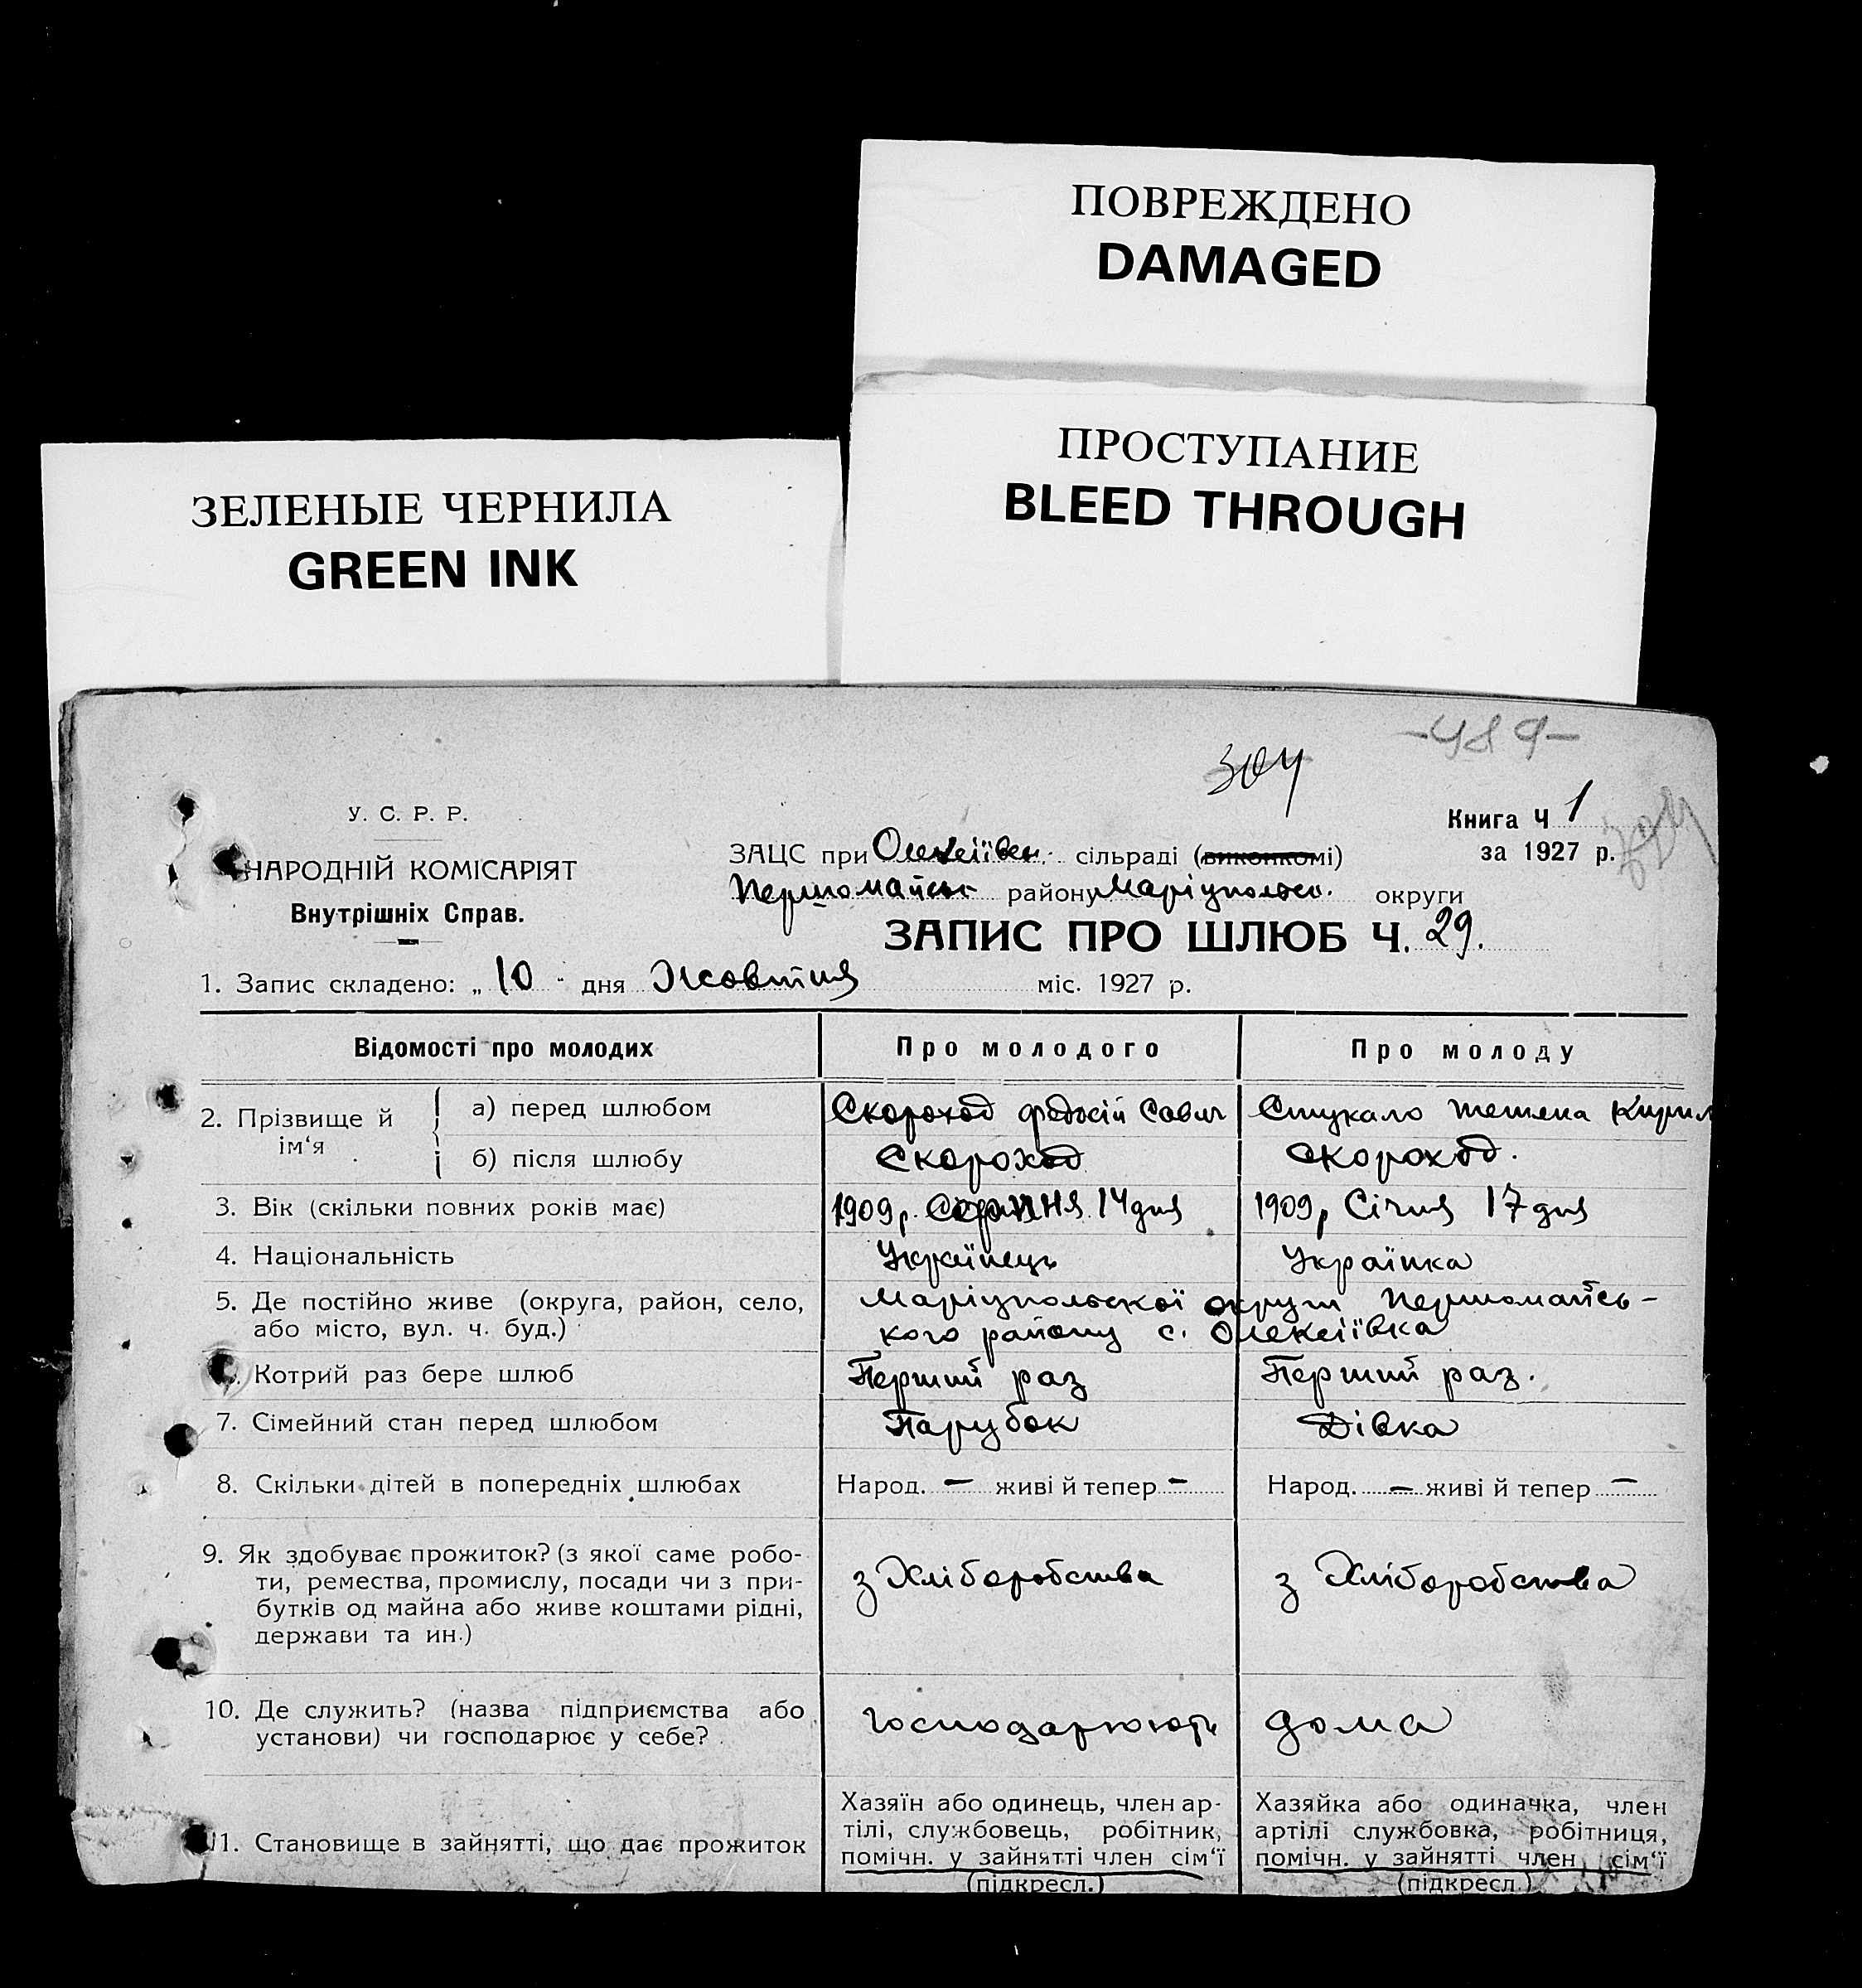 ПОВРЕЖДЕНО
DAMAGED
ПРОСТУПАНИЕ
BLEED THROUGH
ЗЕЛЕНЫЕ ЧЕРНИЛА
GREEN INK
-489-
304
У. С. Р. Р.
НАРОДНІЙ КОМІСАРІЯТ
Внутрішніх Справ.
Книга Ч 1
за 1927 р.
ЗАЦС при Олексіївск. сільраді (виконкомі)
Першомайськ району Маріупольск. округи
ЗАПИС ПРО ШЛЮБ Ч. 29.
1. Запис складено: „10" дня Жовтня міс. 1927 р.
Відомості про молодих Про молодого Про молоду
2. Прізвище й ім‘я а) перед шлюбом Скороход Федосій Савич Стукало Тетяна Кирил
б) після шлюбу Скороход Скороход.
3. Вік (скільки повних років має) 1909 р. Серпня 14 дня 1909 р Січня 17 дня
4. Національність Українець Українка
5. Де постійно живе (округа, район, село, Маріупольскої округи Першомайсь-
або місто, вул. ч. буд.) кого району с. Олексіївка
Котрий раз бере шлюб Перший раз Перший раз.
7. Сімейний стан перед шлюбом Парубок Дівка
8. Скільки дітей в попередніх шлюбах Народ. – живі й тепер – Народ. – живі й тепер –
9. Як здобуває прожиток? (з якої саме робо-
ти, ремества, промислу, посади чи з при- з Хліборобства з Хліборобства
бутків од майна або живе коштами рідні,
держави та ин.)
10. Де служить? (назва підприємства або
установи) чи господарює у себе? господарюють дома
11. Становище в зайнятті, що дає прожиток
Хазяїн або одинець, член ар-
тілі, службовець, робітник,
помічн. у зайнятті член сім‘ї
(підкресл.)
Хазяйка або одиначка, член
артілі службовка, робітниця,
помічн. у зайнятті член сім‘ї
(підкресл.)